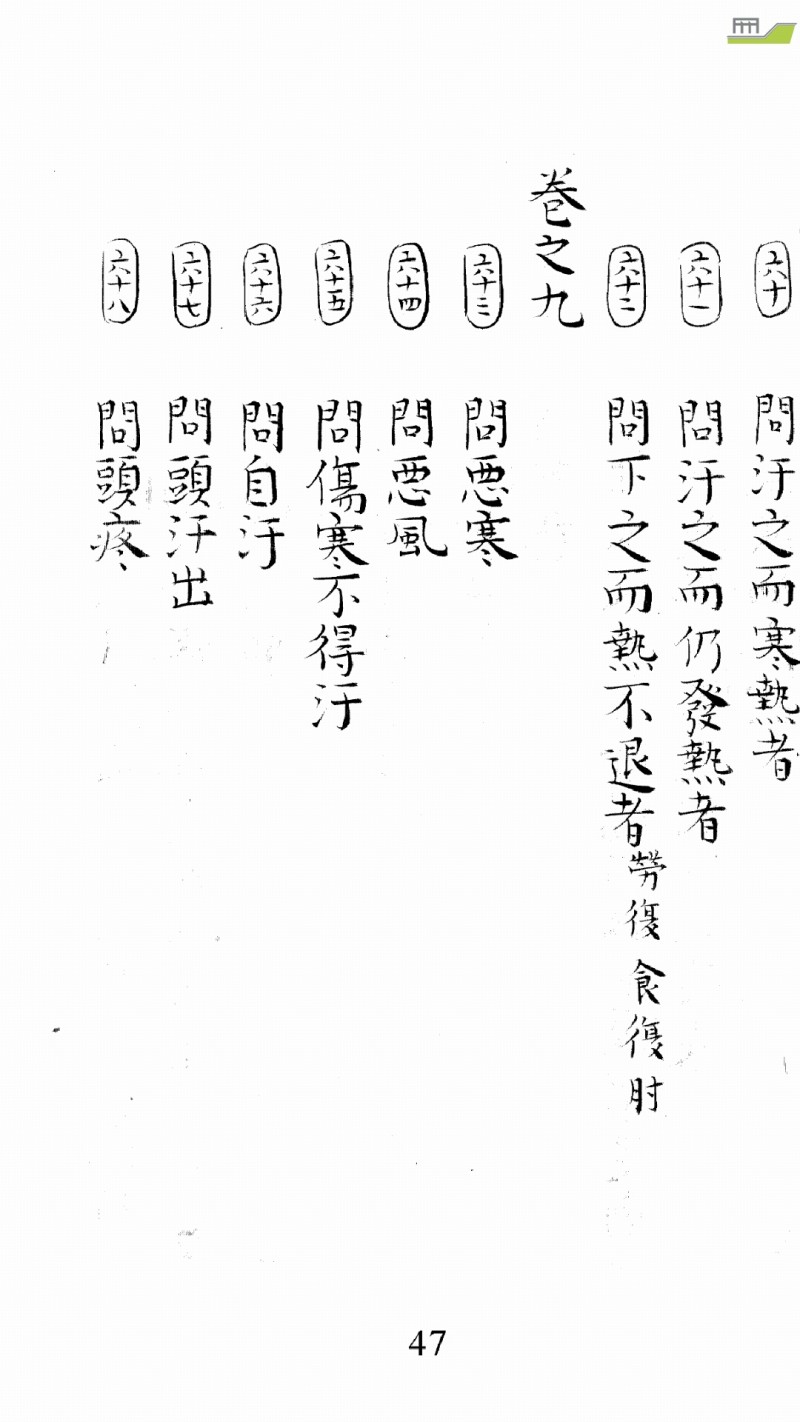 六十 問汗之而寒熱者
六十一 問汗之而仍發熱者
六十二 問下之而熱不退者 勞復食復附
卷之九
六十三 問惡寒
六十四 問惡風
六十五 問傷寒不得汗
六十六 問自汗
六十七 問頭汗出
六十八 問頭疼
47